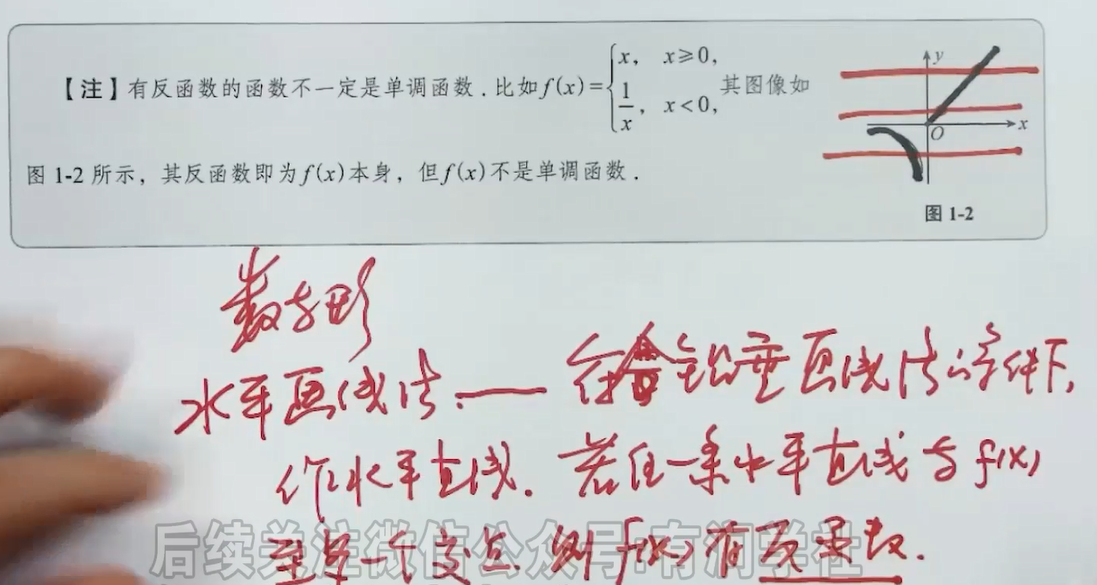 【注】有反函数的函数不一定是单调函数.比如f(x)={x, x≥0, 1/x, x<0, 其图像如
图1-2所示，其反函数即为f(x)本身，但f(x)不是单调函数.
y
O
x
图1-2
数与形
水平画线法:—— 在符合铅垂画线法的条件下,
作水平直线. 若任一条水平直线与f(x)
至多一个交点 则f(x)有反函数.
后续关注微信公众号:有润学社